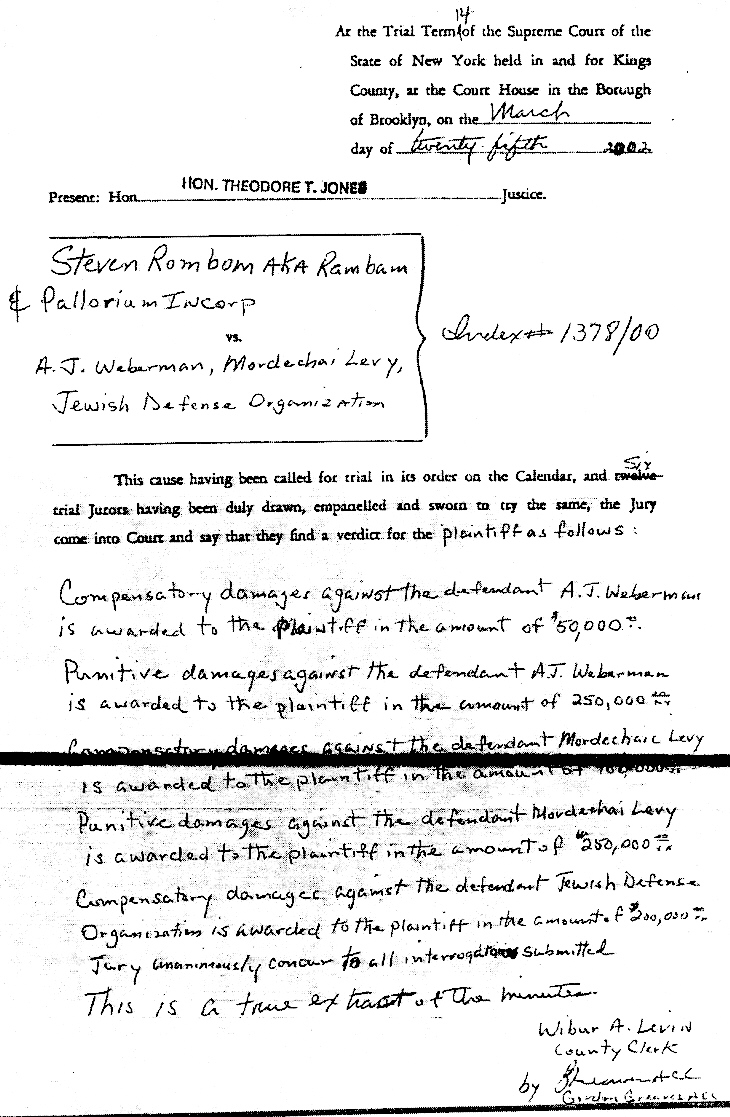 14
At the Trial Term of the Supreme Court of the
State of New York held in and for Kings
County, at the Court House in the Borough
of Brooklyn, on the March
day of twenty-fifth 2002
HON. THEODORE T. JONES
Present: Hon. Justice.
Steven Rombom AKA Rambam
& Pallorium Incorp
vs.
A.J. Weberman, Mordechai Levy,
Jewish Defense Organization
Index# 1378/00
Six
This cause having been called for trial in its order on the Calendar, and twelve
trial Jurors having been duly drawn, empanelled and sworn to try the same, the Jury
come into Court and say that they find a verdict for the plaintiff as follows:
Compensatory damages against the defendant A.J. Weberman
is awarded to the plaintiff in the amount of $50,000.00
Punitive damages against the defendant AJ. Weberman
is awarded to the plaintiff in the amount of 250,000.00
Compensatory damages against the defendant Mordechaic Levy
is awarded to the plaintiff in the amount of
Punitive damages against the defendant Mordechai Levy
is awarded to the plaintiff in the amount of $250,000.00
Compensatory damages against the defendant Jewish Defense
Organization is awarded to the plaintiff in the amount of $200,000.00
Jury unanimously concur to all interrogatories submitted
This is a true extract of the minutes.
Wilbur A. Levin
County Clerk
by
Gordon